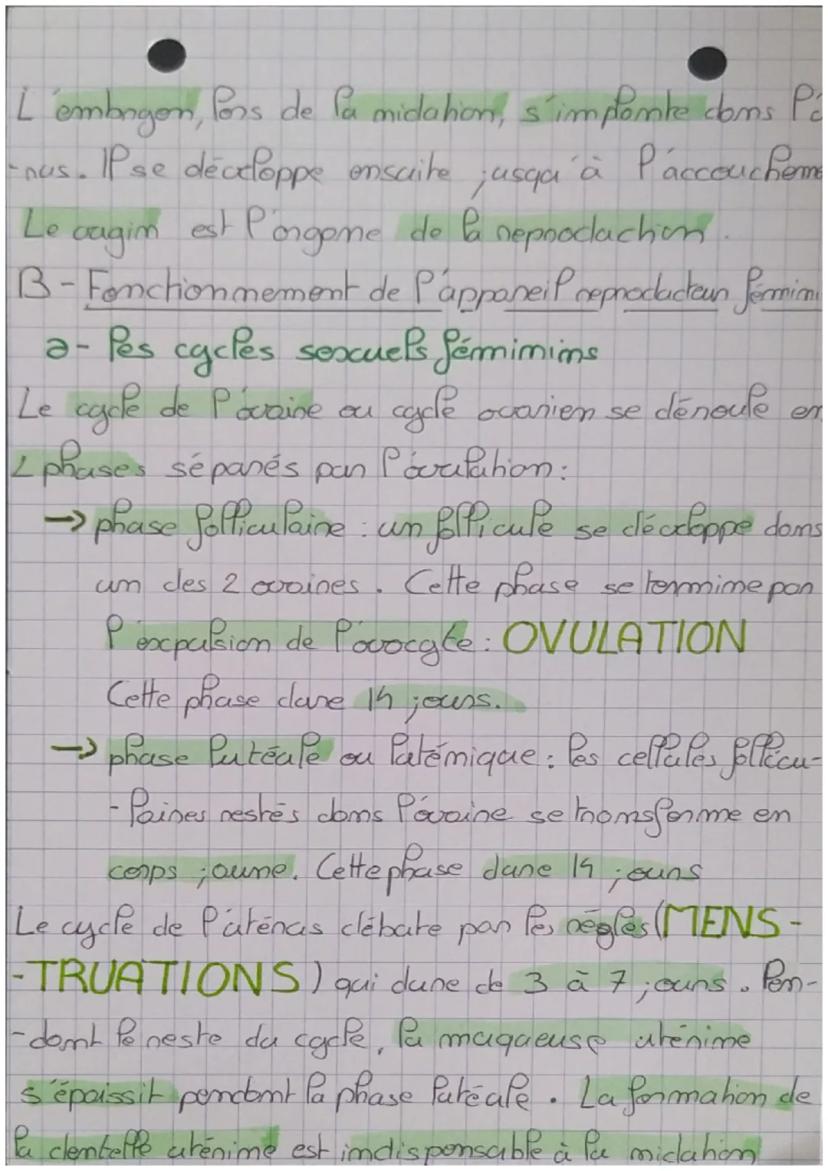 L'embryon, lors de la nidation, s'implante dans l'
-rus. Il se développe ensuite jusqu'à l'accouchem
Le vagin est l'organe de la reproduction.
B - Fonctionnement de l'appareil reproducteur féminin
a - les cycles sexuels féminins
Le cycle de l'ovaire ou cycle ovarien se déroule en
2 phases séparés par l'ovulation :
→ phase folliculaire : un follicule se développe dans
un des 2 ovaires. Cette phase se termine par
l'expulsion de l'ovocyte : OVULATION
Cette phase dure 14 jours.
→ phase lutéale ou lutéinique : les cellules follicu-
-laires restés dans l'ovaire se transforme en
corps jaune. Cette phase dure 14 jours
Le cycle de l'utérus débute par les règles (MENS-
-TRUATIONS) qui dure de 3 à 7 jours. Pen-
-dant le reste du cycle, la muqueuse utérine
s'épaissit pendant la phase lutéale. La formation de
la dentelle utérine est indispensable à la nidation